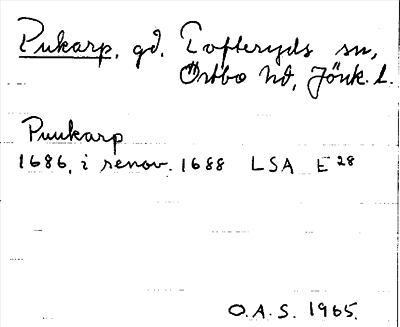 Pukarp, gd, Tofteryds sn,
Östbo hd, Jönk. l.
Puukarp
1686, i renov. 1688 LSA E 28
O.A.S. 1965.